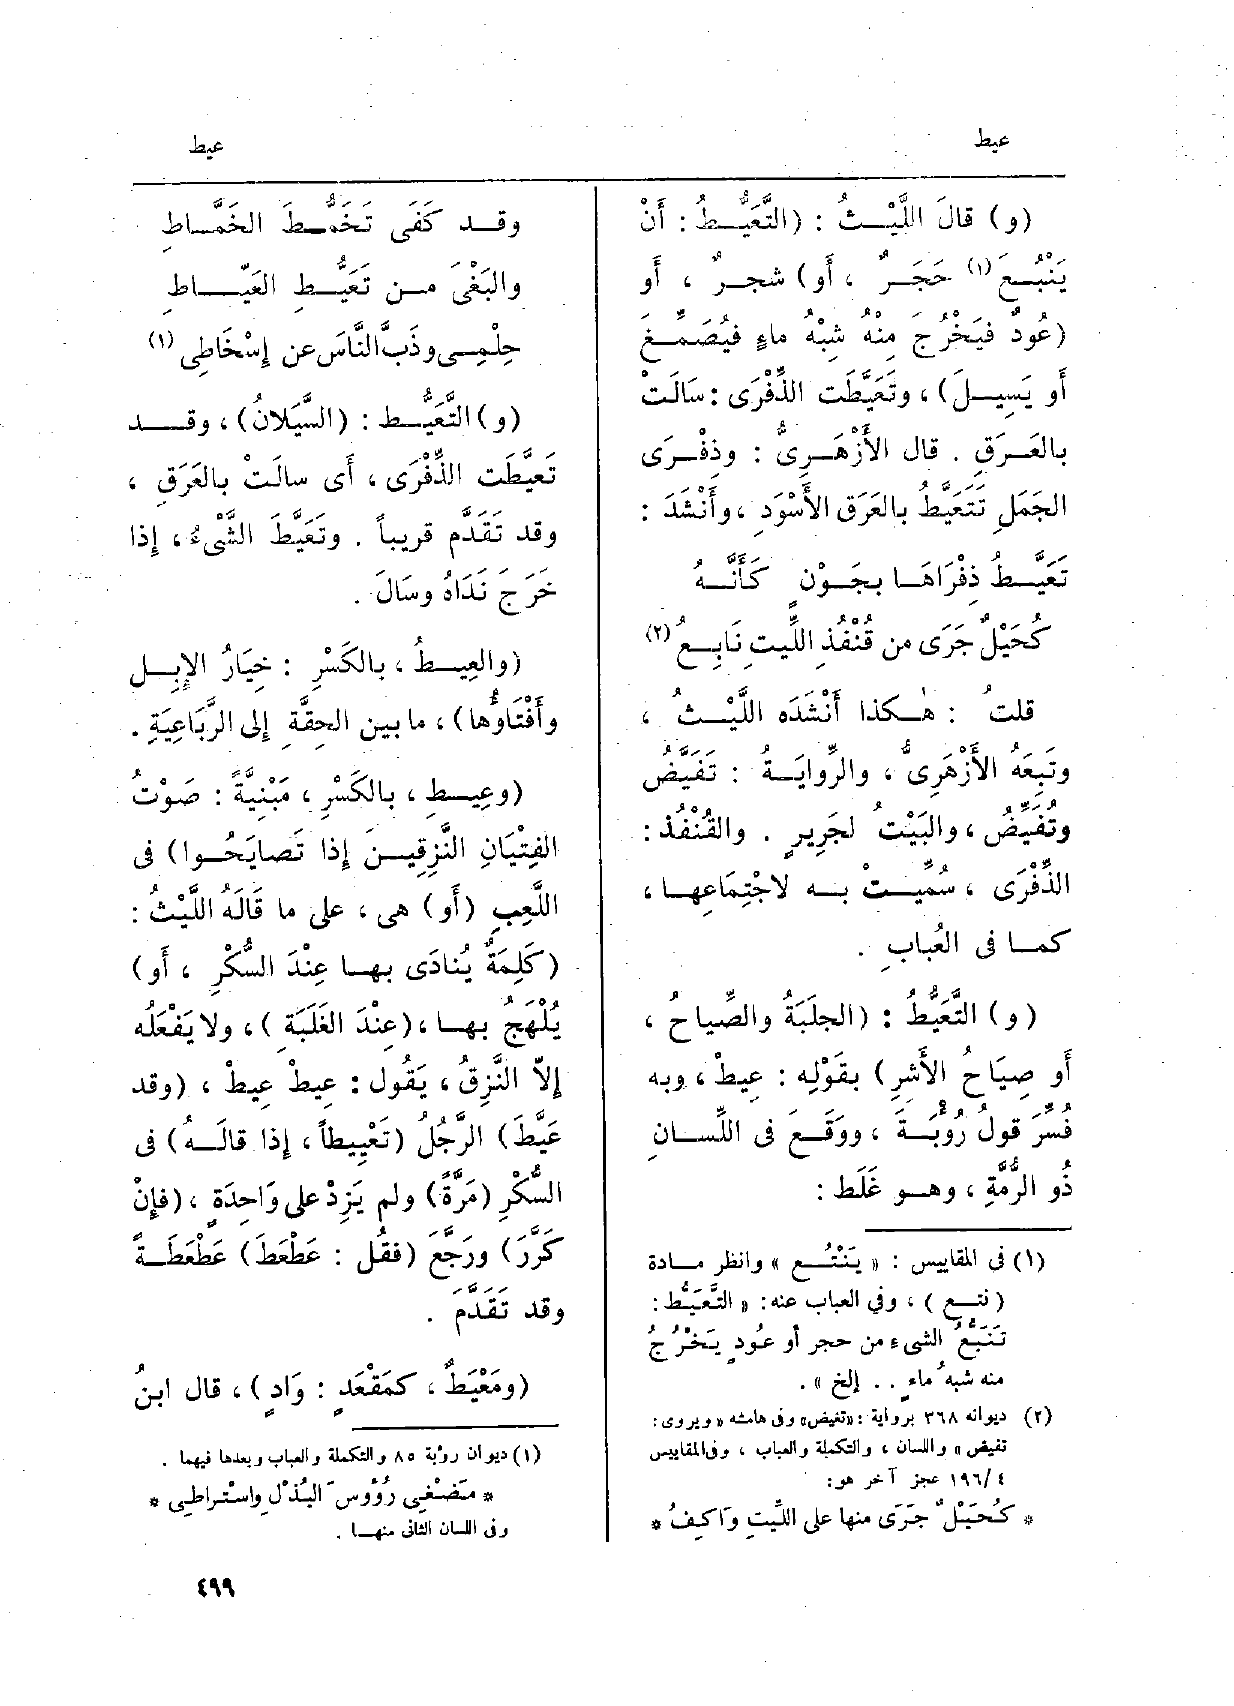 عيط
عيط
(و) قالَ اللَّيْــثُ : (التَّعَيُّــطُ : أَنْ
يَنْبُــعَ (١) حَجَــرٌ ، أَو) شجــرٌ ، أَو
(عُودٌ فيَخْرُج مِنْهُ شِبْهُ ماءٍ فيُصَمِّــغ
أَو يَسِيــلَ) ، وتَعَيَّطَت الذِّفْرَى : سَالَتْ
بالعَــرَقِ . قال الأَزْهَــرِىُّ : وذِفْــرَى
الجَمَلِ تَتَعَيَّطُ بالعَرَق الأَسْوَدِ ، وأَنْشَدَ :
تَعَيَّــطُ ذِفْرَاهَــا بجَــوْنٍ كَأَنَّــهُ
كُحَيْلٌ جَرَى من قُنْفُذِ اللِّيتِ نَابِــعُ (٢)
قلتُ : هٰــكذا أَنْشَدَه اللَّيْــثُ ،
وتَبِعَهُ الأَزْهَرِىُّ ، والرِّوايَــةُ : تَفَيَّضُ
وتُفَيِّضُ ، والبَيْتُ لجَرِيرٍ . والقُنْفُذ :
الذِّفْرَى ، سُمِّيــتْ بــه لاجْتِمَاعِهــا ،
كمــا فى العُبابِ .
(و) التَّعَيُّطُ : (الجلَبَةُ والصِّياحُ ،
أَو صِيَاحُ الأَشِرِ) بقَوْلِه : عِيطْ ، وبه
فُسِّرَ قولُ رُؤْبَــةَ ، ووَقَــعَ فى اللِّســانِ
ذُو الرُّمَّةِ ، وهــو غَلَط :
(١) فى المقاييس : « يَنْتُــع » وانظر مــادة
(نتــع) ، وفى العباب عنه: « التَّعَيُّط :
تَنَبُّعُ الشىء من حجر أو عُودٍ يَخْرُجُ
منه شبهُ ماءٍ . . إلخ » .
(٢) ديوانه ٣٦٨ برواية : «تفيض» وفى هامشه «ويروى:
تفيض » واللسان ، والتكملة والعباب ، وفى المقاييس
٤/١٩٦ عجز آخر هو:
* كُحَيْلٌ جَرَى منها على اللِّيتِ وَاكِفُ *
وقــد كَفَى تَخَمُّــطَ الخَمَّــاطِ
والبَغْىَ مــن تَعَيُّــطِ العَيّــاطِ
حِلْمِــى وذَبَّ النَّاسَ عن إِسْخَاطِى (١)
(و) التَّعَيُّــط : (السَّيَلانُ) ، وقــد
تَعيَّطَت الذِّفْرَى ، أَى سالَتْ بالعَرَقِ ،
وقد تَقَدَّم قريباً . وتَعَيَّطَ الشَّىْءُ ، إِذا
خَرَج نَدَاهُ وسَالَ .
(والعِيــطُ ، بالكَسْرِ : خِيَارُ الإِبِــلِ
وأَفْتَاؤُها) ، ما بين الحِقَّةِ إِلى الرَّبَاعِيَةِ .
(وعِيــطِ ، بالكَسْرِ ، مَبْنِيَّةً : صَوْتُ
الفِتْيَانِ النَّزِقِيــنَ إِذا تَصايَحُــوا) فى
اللَّعِبِ (أَو) هى ، على ما قَالَهُ اللَّيْثُ :
(كَلِمَةٌ يُنادَى بهــا عِنْدَ السُّكْرِ ، أَو)
يُلْهَجُ بهــا ، (عِنْدَ الغَلَبَةِ) ، ولا يَفْعَلُه
إِلاّ النَّزِقُ ، يَقُول : عِيطْ عِيطْ ، (وقد
عَيَّطَ) الرَّجُلُ (تَعْيِيطاً ، إِذا قالَــهُ) فى
السُّكْرِ (مَرَّةً) ولم يَزِدْ على وَاحِدَةٍ ، (فإِنْ
كَرَّرَ) ورَجَّعَ (فقُل : عَطْعَطَ) عَطْعَطَــةً
وقد تَقَدَّم .
(ومَعْيَطٌ ، كمَقْعَدٍ : وَادٍ) ، قال ابنُ
(١) ديوان رؤبة ٨٥ والتكملة والعباب وبعدها فيهما .
* مَضْغِى رُؤُوسَ البُذْلِ واسْتراطِى *
وفى اللسان الثانى منهــا .
٤٩٩